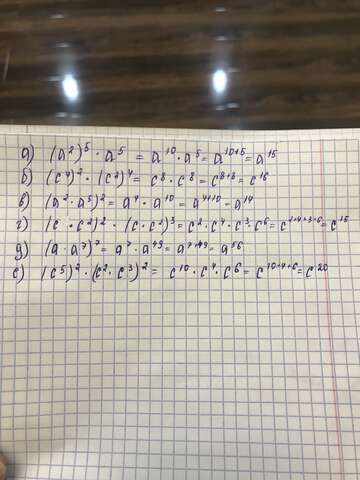 а) (a²)⁵ · a⁵ = a¹⁰ · a⁵ = a¹⁰⁺⁵ = a¹⁵
б) (c⁴)² · (c²)⁴ = c⁸ · c⁸ = c⁸⁺⁸ = c¹⁶
в) (a² · a⁵)² = a⁴ · a¹⁰ = a⁴⁺¹⁰ = a¹⁴
г) (c · c²)² · (c · c²)³ = c² · c⁴ · c³ · c⁶ = c²⁺⁴⁺³⁺⁶ = c¹⁵
д) (a · a⁷)⁷ = a⁷ · a⁴⁹ = a⁷⁺⁴⁹ = a⁵⁶
е) (c⁵)² · (c² · c³)² = c¹⁰ · c⁴ · c⁶ = c¹⁰⁺⁴⁺⁶ = c²⁰